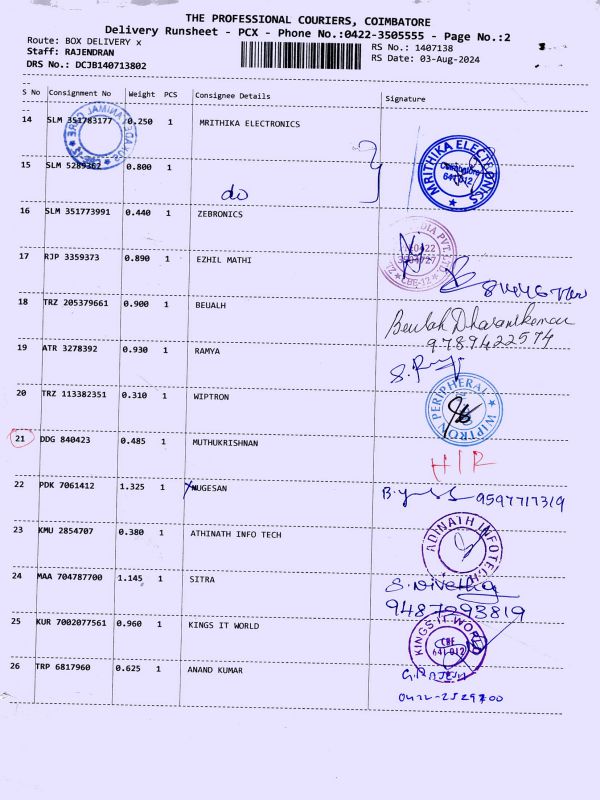 THE PROFESSIONAL COURIERS, COIMBATORE
Delivery Runsheet - PCX - Phone No.:0422-3505555 - Page No.:2
Route: BOX DELIVERY x RS No.: 1407138
Staff: RAJENDRAN RS Date: 03-Aug-2024
DRS No.: DCJB140713802
S No Consignment No Weight PCS Consignee Details Signature
14 SLM 351783177 0.250 1 MRITHIKA ELECTRONICS
MRITHIKA ELECTRONICS Coimbatore 641 012
15 SLM 5289362 0.800 1 do
16 SLM 351773991 0.440 1 ZEBRONICS
CBE-12
17 RJP 3359373 0.890 1 EZHIL MATHI
18 TRZ 205379661 0.900 1 BEUALH
Beulah Dharanikumar
9789422574
19 ATR 3278392 0.930 1 RAMYA
20 TRZ 113382351 0.310 1 WIPTRON
WIPTRON PERIPHERAL
21 DDG 840423 0.485 1 MUTHUKRISHNAN
22 PDK 7061412 1.325 1 MUGESAN
9597717319
23 KMU 2854707 0.380 1 ATHINATH INFO TECH
ADINATH INFOTECH
24 MAA 704787700 1.145 1 SITRA
S. Nivetha
9487993819
25 KUR 7002077561 0.960 1 KINGS IT WORLD
KINGS IT WORLD CBE 641 012
26 TRP 6817960 0.625 1 ANAND KUMAR